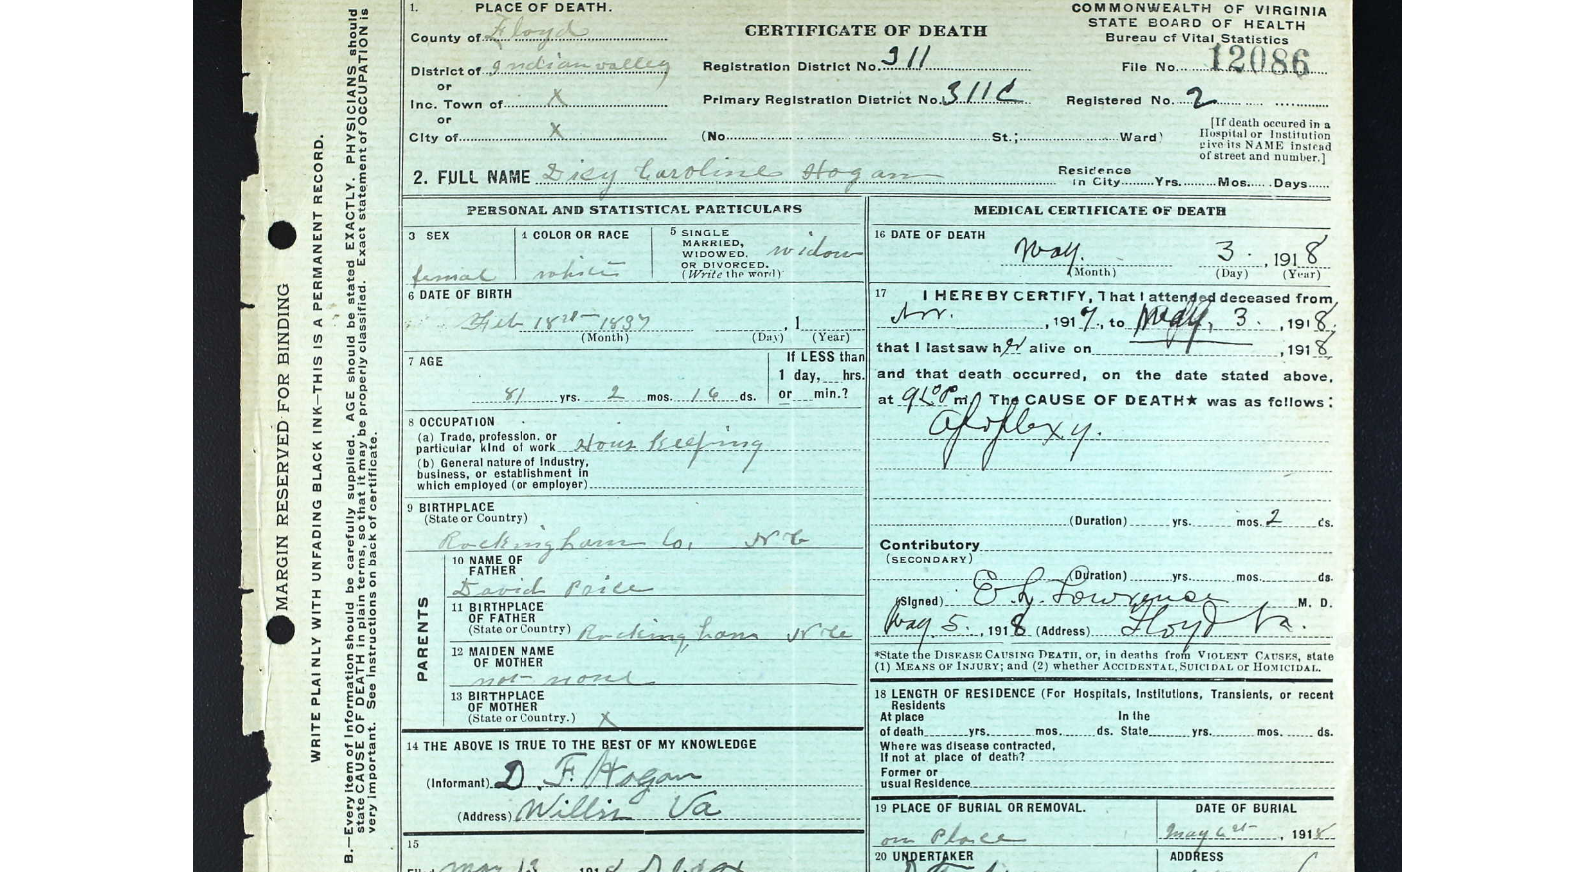 MARGIN RESERVED FOR BINDING
WRITE PLAINLY WITH UNFADING BLACK INK—THIS IS A PERMANENT RECORD.
B.—Every item of Information should be carefully supplied. AGE should be stated EXACTLY. PHYSICIANS should
state CAUSE OF DEATH in plain terms, so that it may be properly classified. Exact statement of OCCUPATION is
very important. See instructions on back of certificate.
1. PLACE OF DEATH.
County of Floyd
District of Indian valley
or
Inc. Town of X
or
City of X
CERTIFICATE OF DEATH
Registration District No. 311
Primary Registration District No. 311C
(No. St.; Ward)
COMMONWEALTH OF VIRGINIA
STATE BOARD OF HEALTH
Bureau of Vital Statistics
File No. 12086
Registered No. 2
[If death occured in a
Hospital or Institution
give its NAME instead
of street and number.]
2. FULL NAME Dicy Caroline Hogan
Residence
In City Yrs. Mos. Days
PERSONAL AND STATISTICAL PARTICULARS
3 SEX
femal
4 COLOR OR RACE
white
5 SINGLE
MARRIED,
WIDOWED,
OR DIVORCED.
(Write the word)
widow
6 DATE OF BIRTH
Feb 18 1837 , 1
(Month) (Day) (Year)
7 AGE
81 yrs. 2 mos. 16 ds.
If LESS than
1 day, hrs.
or min.?
8 OCCUPATION
(a) Trade, profession, or
particular kind of work Hous Keeping
(b) General nature of Industry,
business, or establishment in
which employed (or employer)
9 BIRTHPLACE
(State or Country)
Rockingham Co, N C
PARENTS
10 NAME OF
FATHER
David Price
11 BIRTHPLACE
OF FATHER
(State or Country) Rockingham N C
12 MAIDEN NAME
OF MOTHER
not none
13 BIRTHPLACE
OF MOTHER
(State or Country.) X
14 THE ABOVE IS TRUE TO THE BEST OF MY KNOWLEDGE
(Informant) D. F. Hogan
(Address) Willis Va
15
MEDICAL CERTIFICATE OF DEATH
16 DATE OF DEATH
May. 3. , 1918
(Month) (Day) (Year)
17 I HEREBY CERTIFY, That I attended deceased from
, 1917, to May, 3. , 1918
that I last saw her alive on , 1918
and that death occurred, on the date stated above,
at m. The CAUSE OF DEATH★ was as follows:
Apoplexy.
(Duration) yrs. mos. 2 ds.
Contributory
(SECONDARY)
(Duration) yrs. mos. ds.
(Signed) M. D.
May 5. , 1918 (Address) Floyd Va.
*State the DISEASE CAUSING DEATH, or, in deaths from VIOLENT CAUSES, state
(1) MEANS OF INJURY; and (2) whether ACCIDENTAL, SUICIDAL or HOMICIDAL.
18 LENGTH OF RESIDENCE (For Hospitals, Institutions, Transients, or recent
Residents
At place In the
of death yrs. mos. ds. State yrs. mos. ds.
Where was disease contracted,
If not at place of death?
Former or
usual Residence
19 PLACE OF BURIAL OR REMOVAL.
on Place
DATE OF BURIAL
May 6 , 1918
20 UNDERTAKER
ADDRESS